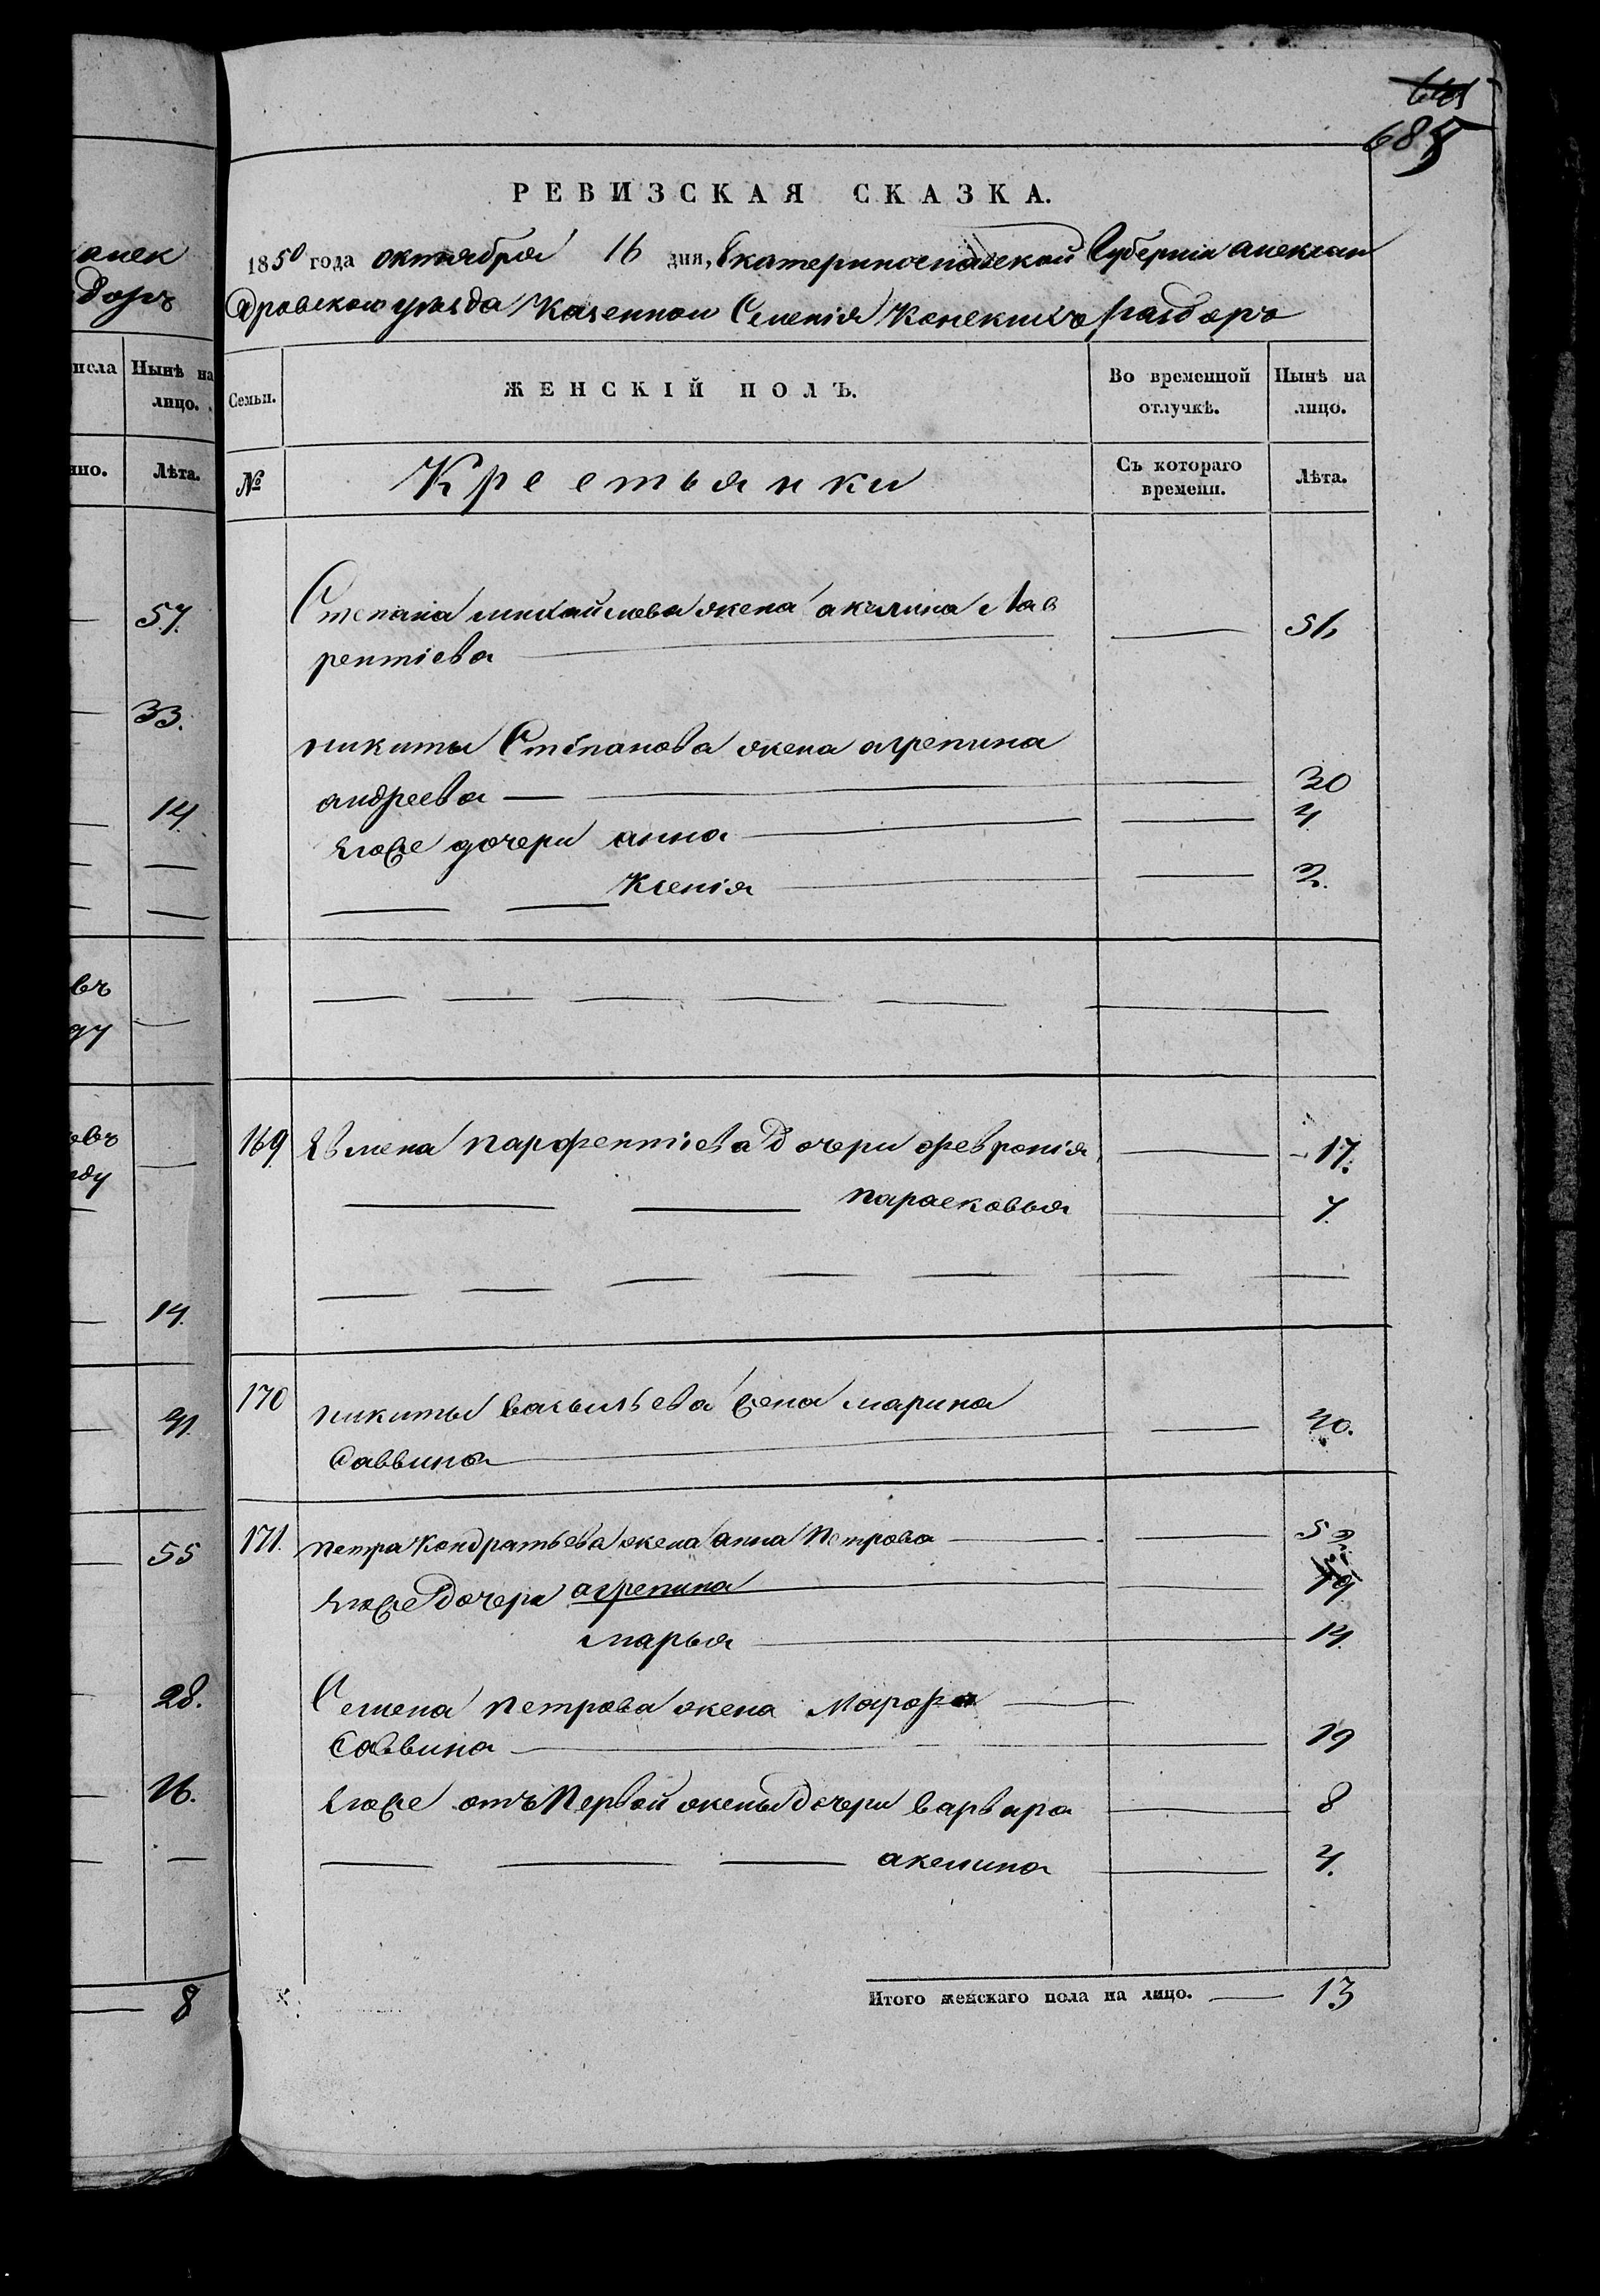 685
РЕВИЗСКАЯ СКАЗКА.
1850 года октября 16 дня, Екатеринославской Губерніи Алексан
дровского уезда Казенного Селенія Конскихъ Раздоръ
Семьи.
ЖЕНСКІЙ ПОЛЪ.
Во временной отлучкѣ.
Нынѣ на лицо.
№
Крестьянки
Съ котораго времени.
Лѣта.
Степана михайлова жена акилина Лав
рентіева 51
никиты Степанова жена агрепина
андреева 30
Егоже дочери анна 4
Ксенія 2.
169 Евмена парфентіева дочери февронія 17.
парасковья 7.
170 никиты васильева жена марина
саввина 40.
171. петра Кондратьева жена анна Петрова 52.
Егоже дочери агрепина 19.
марья 14.
Семена петрова жена Марфа
саввина 19
Егоже отъ Первой жены дочери варвара 8
акелина 4.
Итого женскаго пола на лицо. 13
алек
доръ
исла
Нынѣ на
лицо.
нно.
Лѣта.
57.
33.
14.
въ
ду
въ
ду
14.
41.
55
28.
26.
8